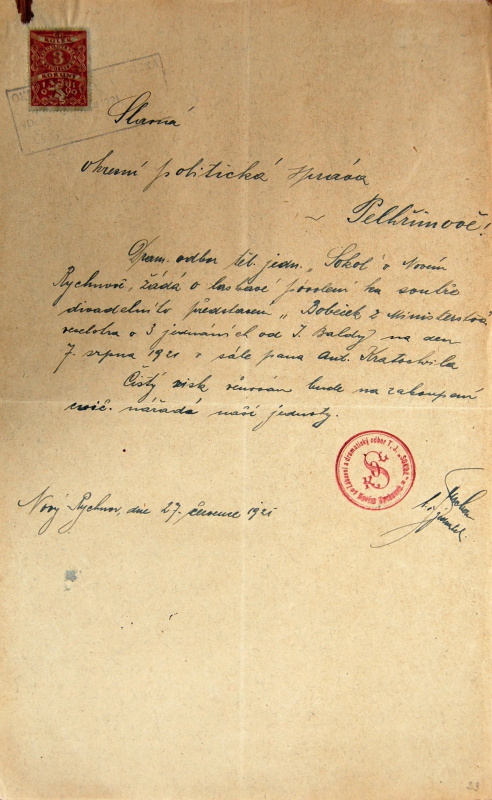 KOLEK
3
KORUNY
Slavná
okresní politická správa
v Pelhřimově!
Dram. odbor těl. jedn. „Sokol" v Novém
Rychnově, žádá o laskavé povolení ku
divadelního představení „Bobeček z Ministerstva
veselohra o 3 jednáních od J. Baldy) na den
7. srpna 1921 v sále pana Ant. Kratochvíla
Čistý zisk věnován bude na zakoupení
cvič. nářadí naší jednoty.
Zábavní a dramatický odbor T. J. „SOKOL" v Novém Rychnově
SOKOL
Nový Rychnov, dne 27. července 1921
23